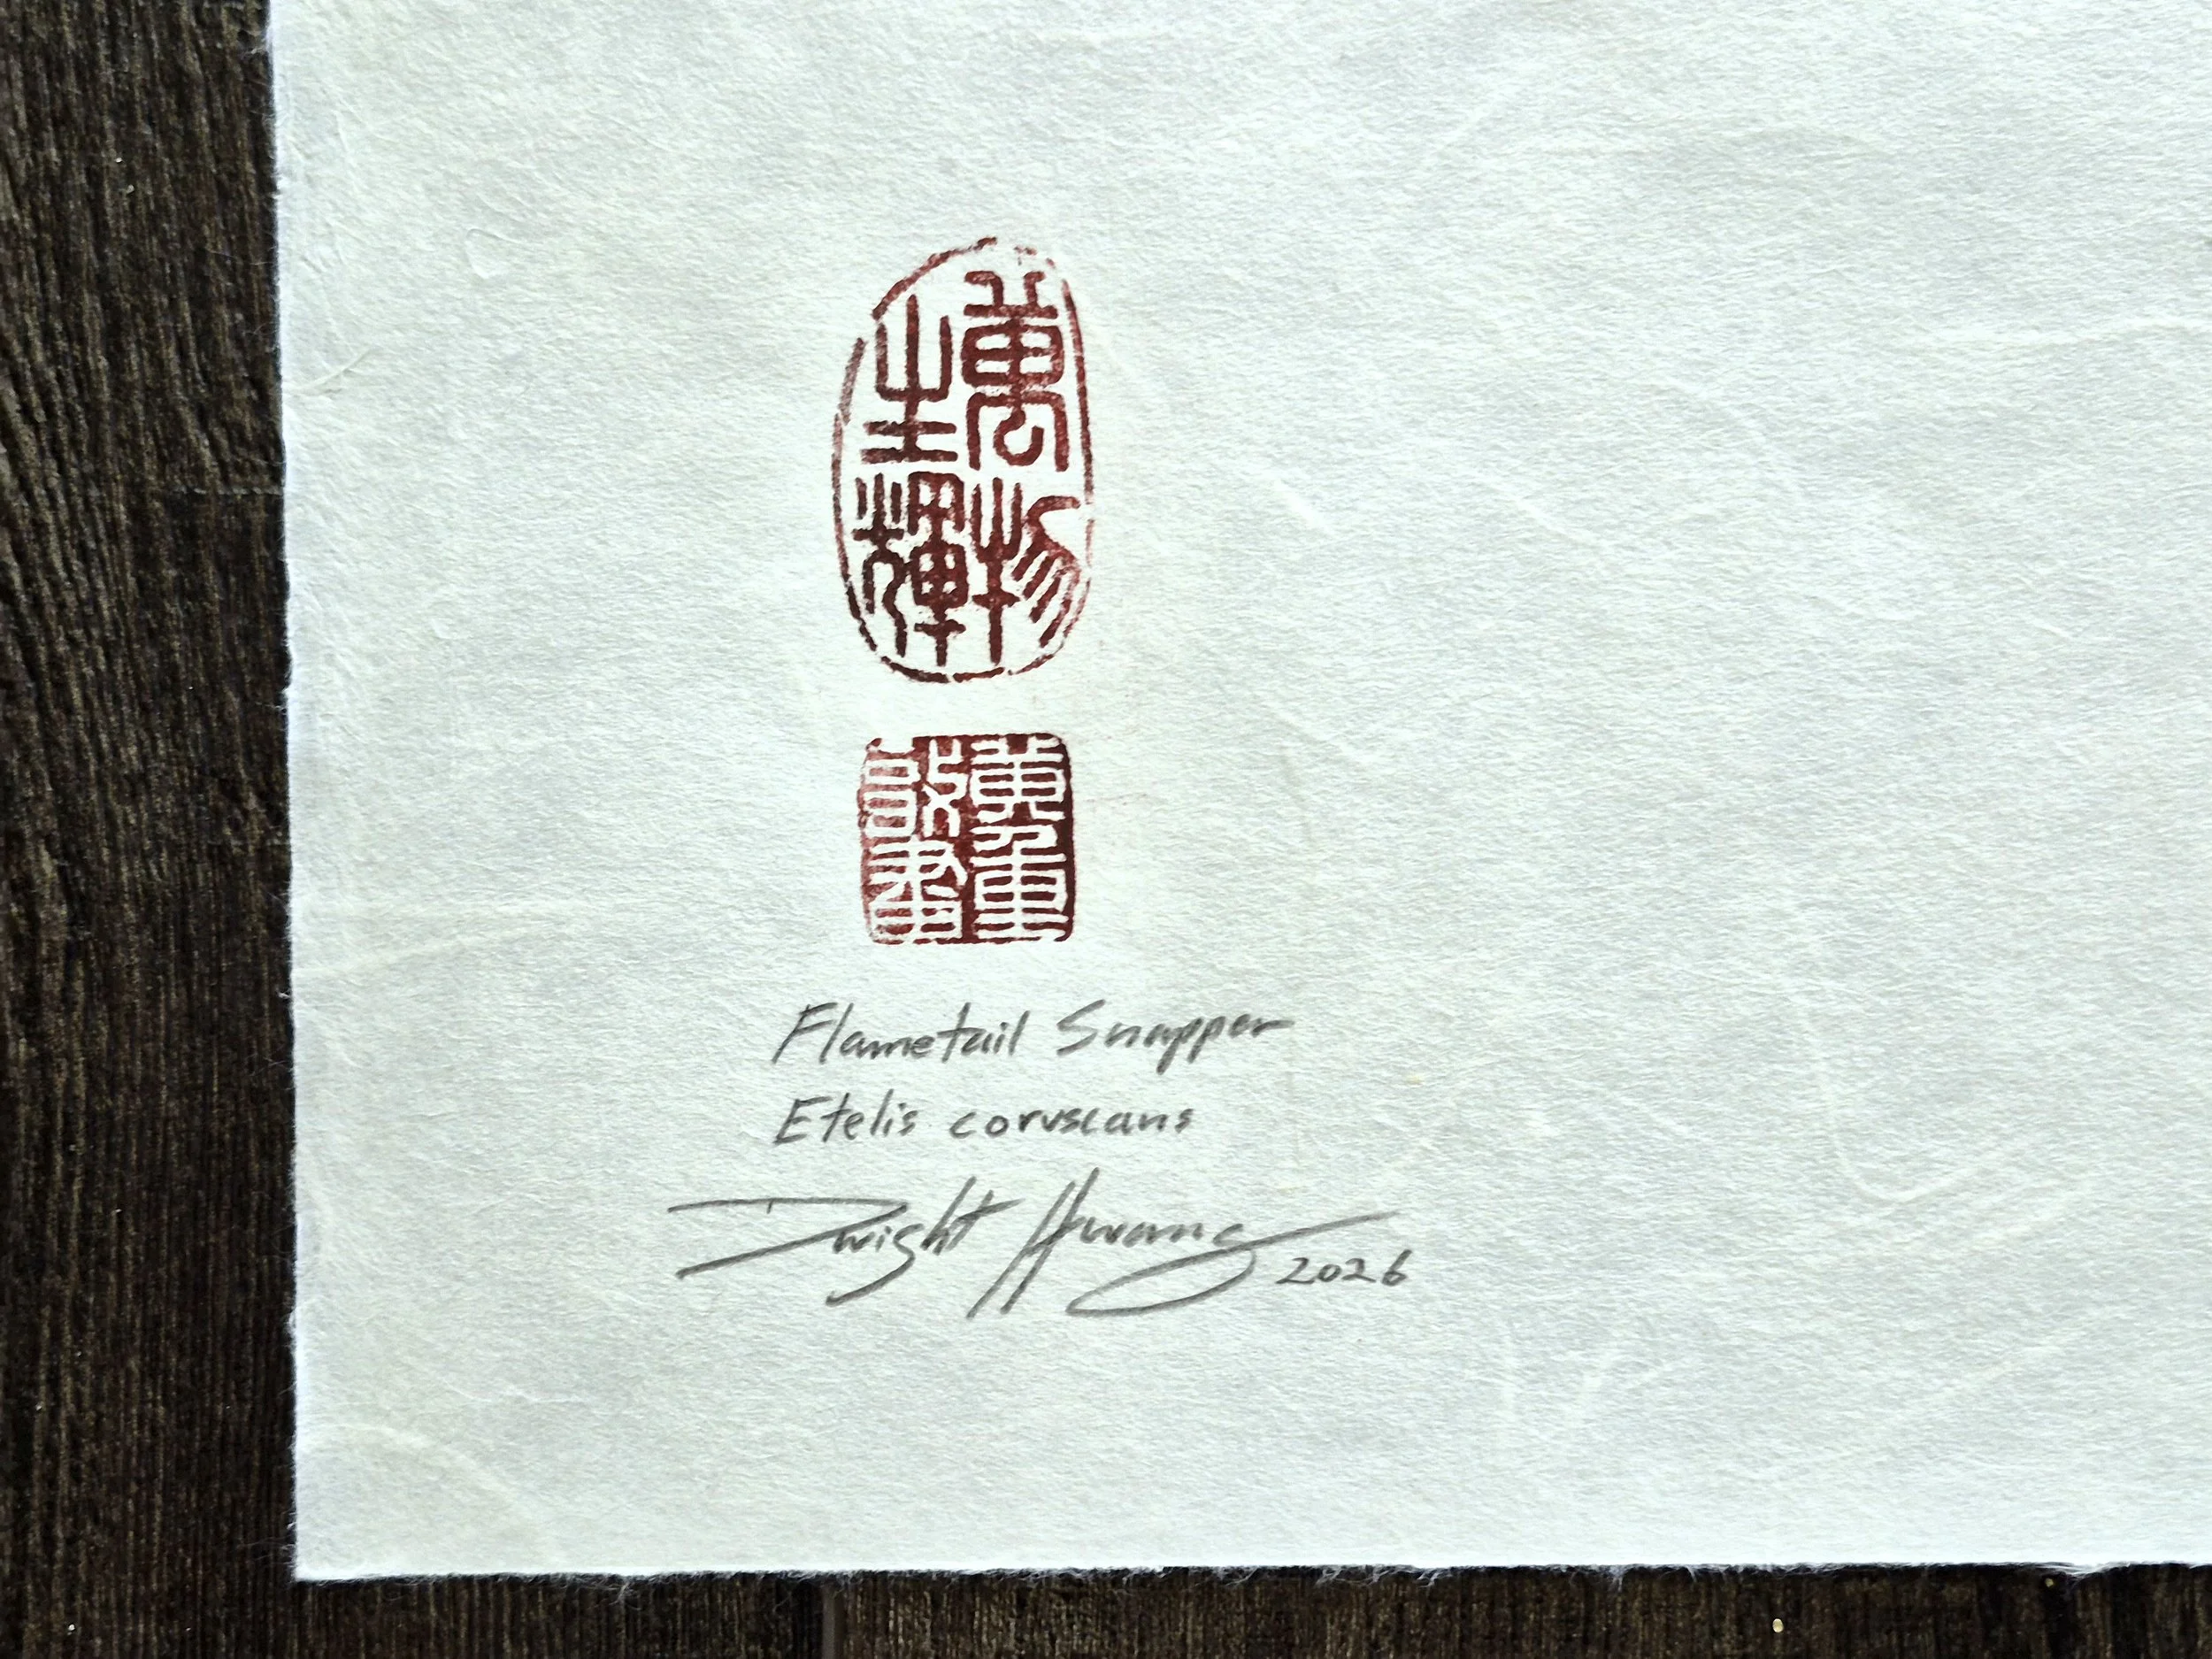 萬物
生輝
Flametail Snapper
Etelis coruscans
Dwight Hwang 2026